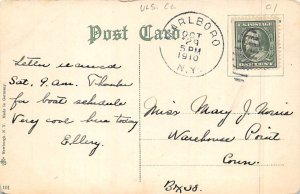 U.S. Ct. 01
Post Card
MARLBORO
OCT
29
5 PM
1910
N.Y.
U.S. POSTAGE
ONE CENT
Letter received
Sat. 9 a.m. Thanks
for boat schedule
Very cool here today
Ellery.
Miss Mary J. Norris
Warehouse Point
Conn.
Box 55.
Newburgh, N.Y. Made in Germany
101